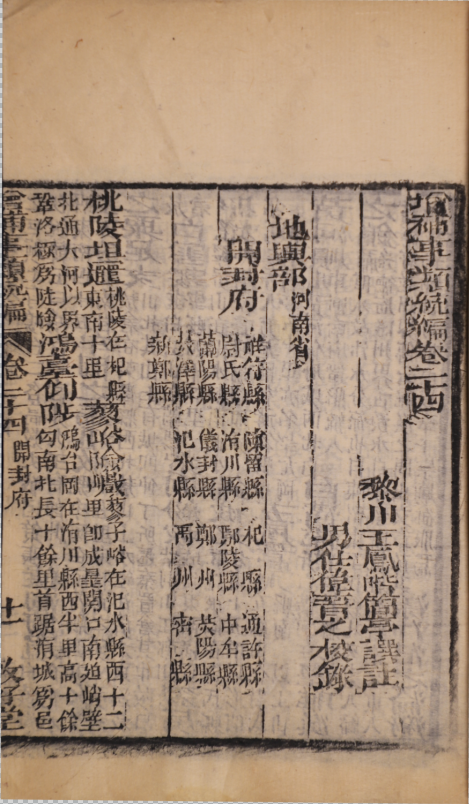 增補事類統編卷二十四
黎川王鳳喈簡亭譯註
男仕偉 之校錄
地輿部 河南省
開封府
祥符縣 陳留縣 杞縣 通許縣
尉氏縣 洧川縣 鄢陵縣 中牟縣
蘭陽縣 儀封縣 鄭州 滎陽縣
滎澤縣 汜水縣 禹州 密縣
新鄭縣
桃陵坦邐 桃陵在杞縣東南十里 蓼峪險巇 蓼子峪在汜水縣西十二 卽成皋關口南 壁
北通大河以界鞏洛極爲陡險 鴻臺仰陟 鴻台岡在洧川縣西半里高十餘 南北長十餘里首踞 城 邑
增補事類統編 卷二十四 開封府 十一 堂